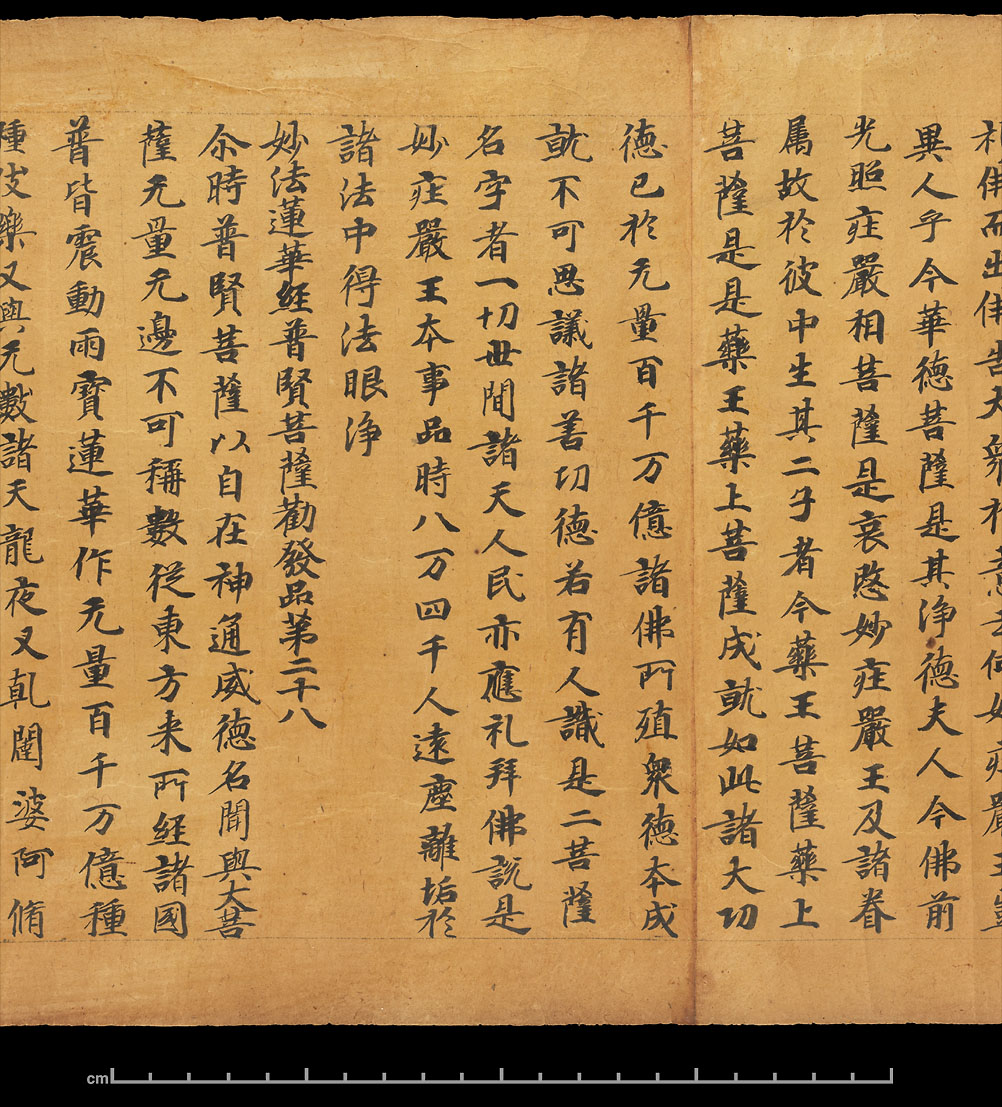 礼佛而出佛告大衆於意云何妙庄嚴王豈
異人乎今華德菩薩是其浄德夫人今佛前
光照庄嚴相菩薩是哀愍妙庄嚴王及諸眷
属故於彼中生其二子者今藥王菩薩藥上
菩薩是是藥王藥上菩薩成就如此諸大功
德已於无量百千万億諸佛所殖衆德本成
就不可思議諸善功德若有人識是二菩薩
名字者一切世間諸天人民亦應礼拜佛說是
妙庄嚴王本事品時八万四千人遠塵離垢於
諸法中得法眼浄
妙法蓮華經普賢菩薩勸發品第二十八
尒時普賢菩薩以自在神通威德名聞與大菩
薩无量无邊不可稱數從東方来所經諸國
普皆震動雨寶蓮華作无量百千万億種
種伎樂又與无數諸天龍夜叉乹闥婆阿脩
cm